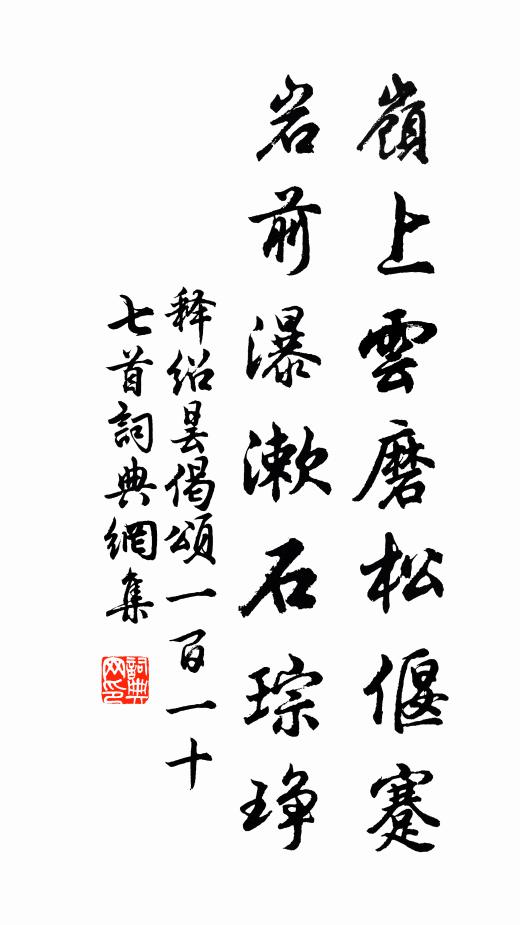 嶺上雲磨松偃蹇
岩前瀑漱石琮琤
释绍昙偈頌一百一十
七首詞典網集
詞典網印